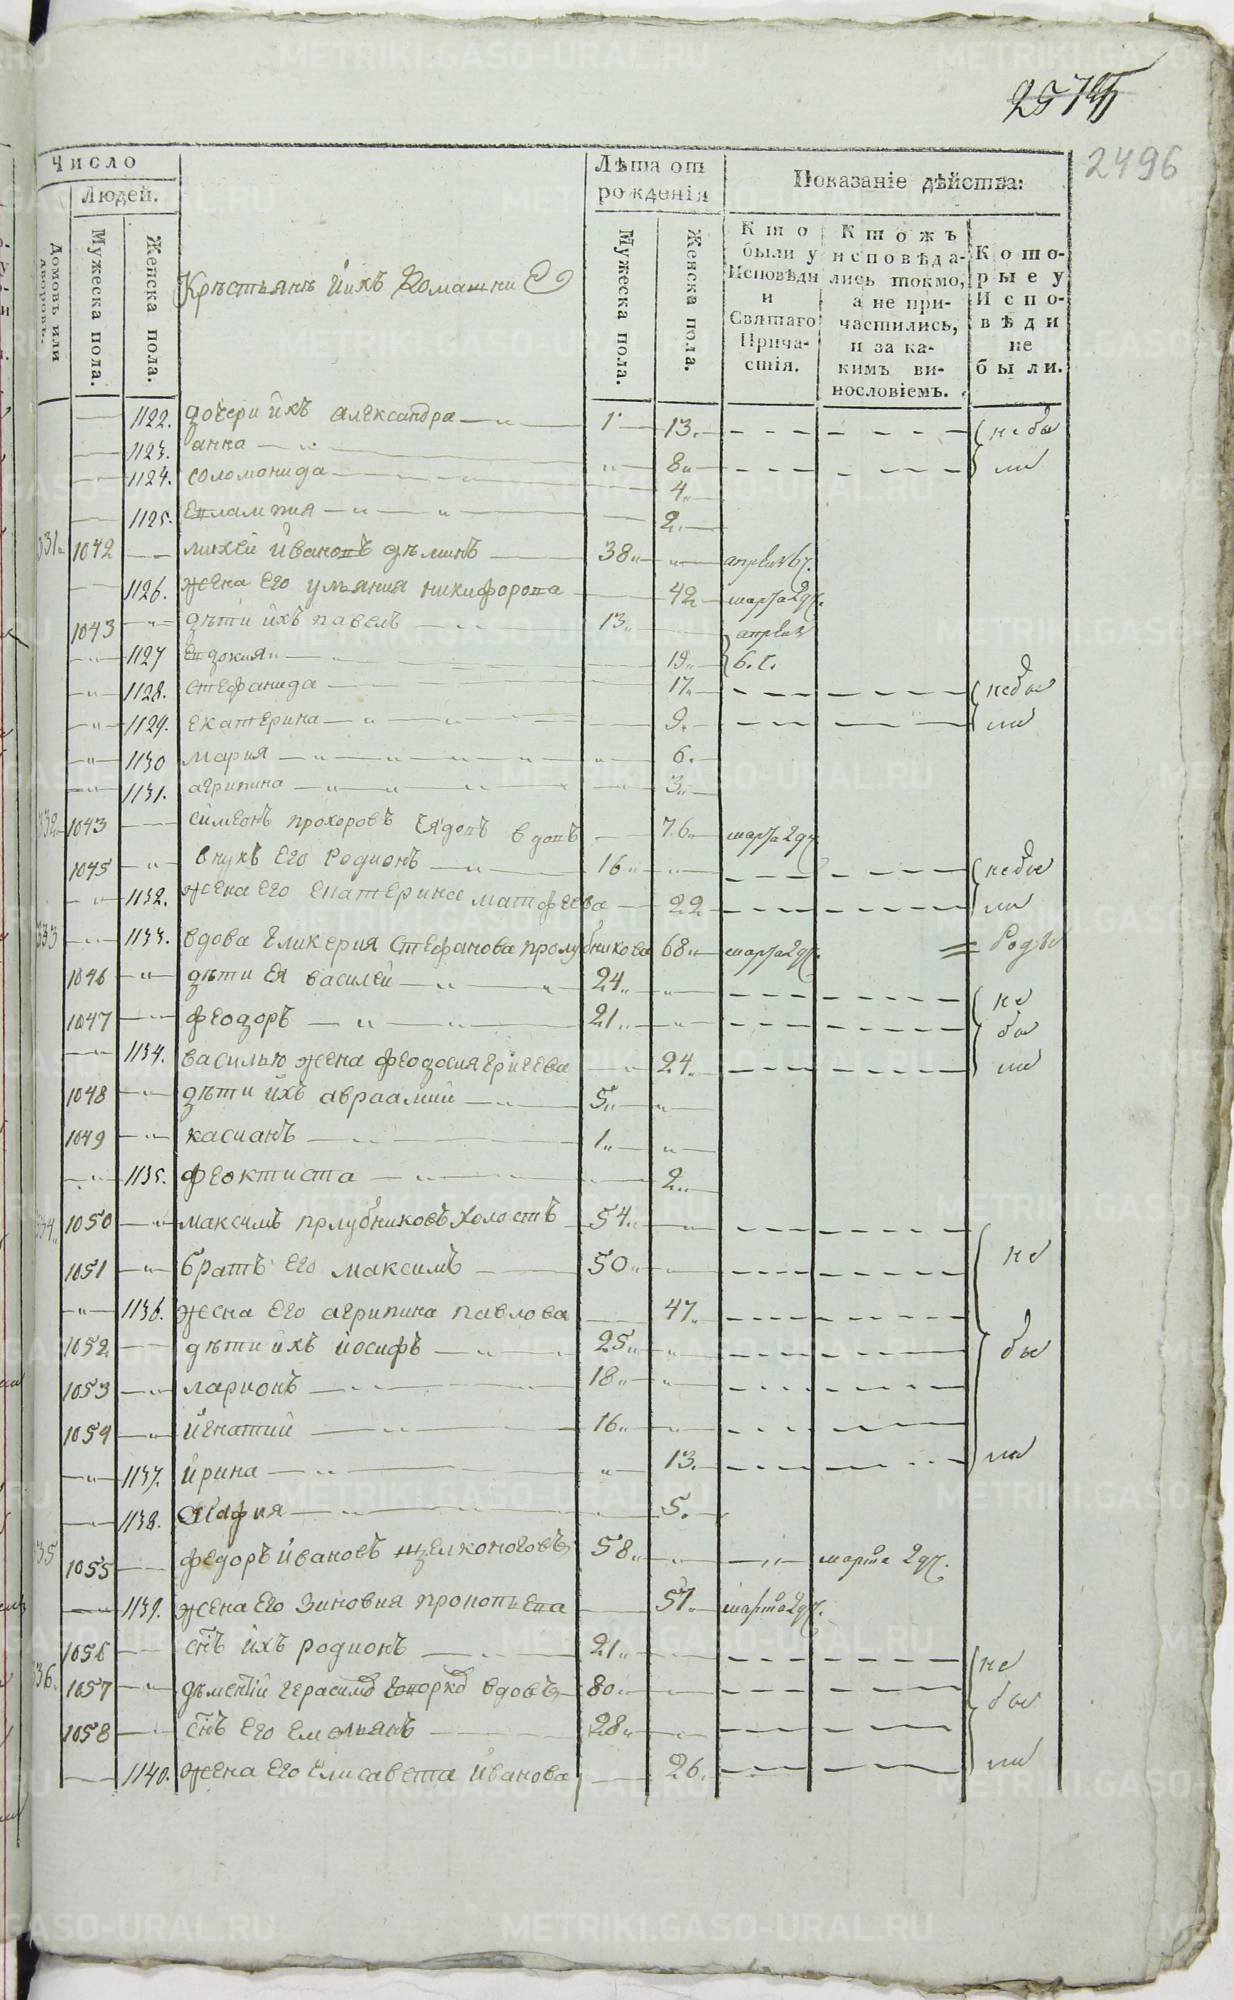 2496
Число
Людей.
Домовъ или дворовъ.
Мужеска пола.
Женска пола.
Крѣстьянѣ йихъ домашни Е
Лѣта от рожденія
Мужеска пола.
Женска пола.
Показаніе дѣйства:
Кто были у Исповѣди и Святаго Причастія.
Ктожъ исповѣдались токмо, а не причастились, и за какимъ винословіемъ.
Которые у Исповѣди не были.
1122. дочери йхъ александра 13. не бы
1123. анна 8 ли
1124. соломонида 4
1125. евлампия 2
331 1042 михей йвановъ дѣминъ 38 апреля 6 ч.
1126. жена его ульяния никифорова 42 марта 2 ч.
1043 дѣти йхъ павелъ 13 апреля
1127 евдокия 19 6. ч.
1128. стефанида 17 не бы
1129. екатерина 9. ли
1130 мария 6.
1131. агрипина 3
332 1043 симеонъ прохоровъ вдовъ 76 марта 2 ч.
1045 внукъ его родионъ 16 не бы
1132. жена его екатерина матфеева 22 ли
333 1133. вдова гликерия стефанова пролубникова 68 марта 2 ч.
1046 дѣти ея василей 24 не
1047 феодоръ 21 бы
1134. василью жена феодосия 24. ли
1048 дѣти йхъ авраамий 5
1049 касианъ 1
1135. феоктиста 2
334 1050 максимъ прлубниковъ холостъ 54 не
1051 братъ его максимъ 50
1136. жена его агрипина павлова 47
1052 дѣти йхъ йосифъ 25 бы
1053 ларионъ 18
1054 йгнатий 16
1137. йрина 13. ли
1138. 5.
335 1055 федоръ йвановъ щелконоговъ 58 марта 2 ч.
1139. жена его зиновия прокопьева 57 марта 2 ч.
1056 снъ йхъ родионъ 21 не
336. 1057 дѣментий герасимов вдовъ 80 бы
1058 снъ его емельянъ 28
1140. жена его елисавета йванова 26. ли
METRIKI.GASO-URAL.RU